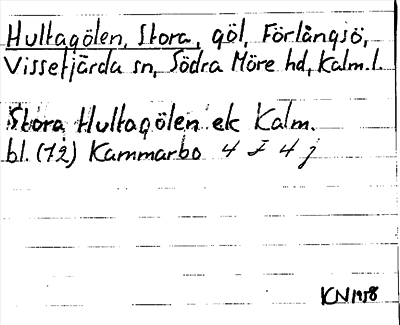 Hultagölen, Stora, göl, Förlångsö,
Vissefjärda sn, Södra Möre hd, Kalm. l.
Stora Hultagölen ek Kalm.
bl. (12) Kammarbo 4 I 4 j
KN 1958